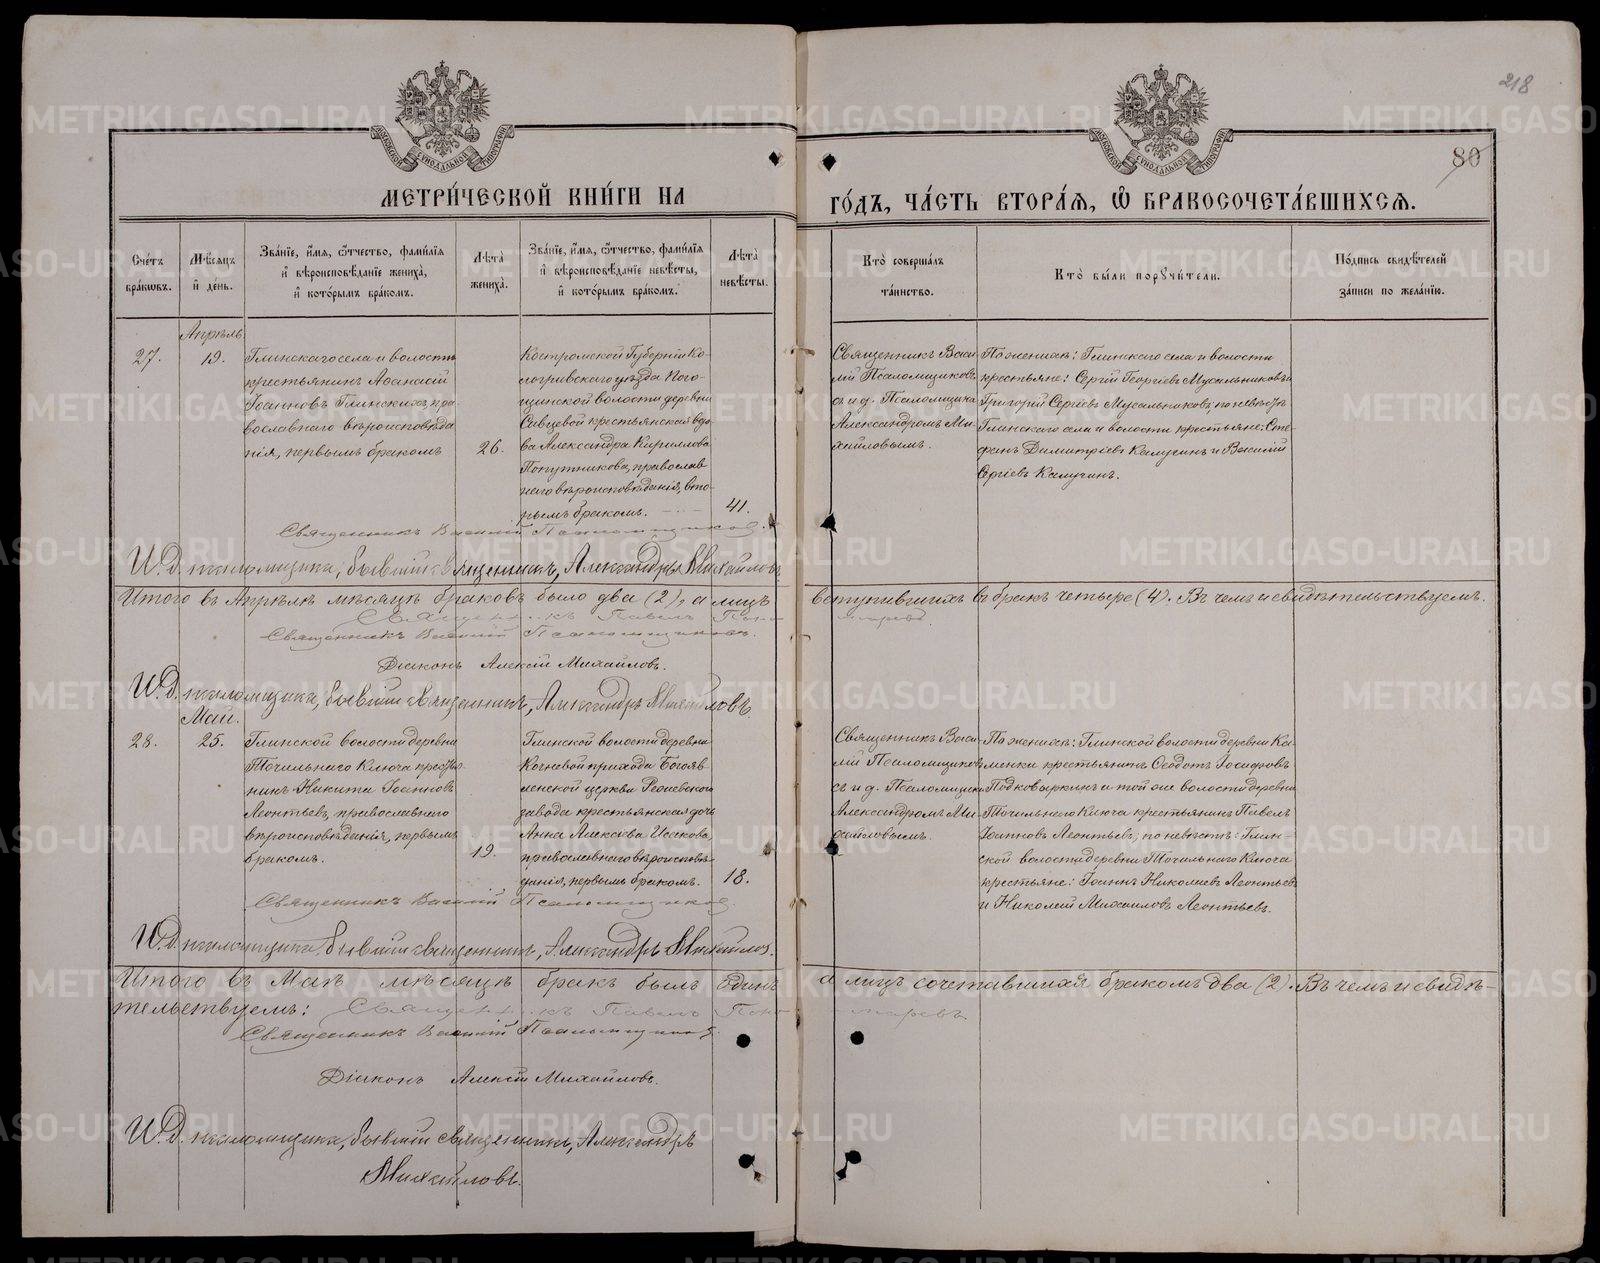 218
80
МОСКОВСКОЙ СѴНОДАЛЬНОЙ ТИПОГРАФІИ
МОСКОВСКОЙ СѴНОДАЛЬНОЙ ТИПОГРАФІИ
МЕТРИ́ЧЕСКОЙ КНИ́ГИ НА
ГО́ДЪ, ЧА́СТЬ ВТОРА́Я, Ѽ БРАКОСОЧЕТА́ВШИХСЯ.
Сче́тъ бра́ковъ.
Мѣ́сяцъ и҆ день.
Зва́нїе, и҆́мя, ѻ҆́тчество, фами́лїя
и҆ вѣроисповѣ́данїе жениха̀,
и҆ кото́рымъ бра́комъ.
Лѣта̀ жениха̀.
Зва́нїе, и҆́мя, ѻ҆́тчество, фами́лїя
и҆ вѣроисповѣ́данїе невѣ́сты,
и҆ кото́рымъ бра́комъ.
Лѣта̀ невѣ́сты.
Кто̀ соверша́лъ
та́инство.
Кто̀ бы́ли порꙋчи́тели.
По́дпись свидѣ́телей
за́писи по жела́нїю.
Апрѣль
27.
19.
Глинскаго села и волости
крестьянинъ Аѳанасій
Іоанновъ Глинскихъ, пра-
вославнаго вѣроисповѣда
нія, первымъ бракомъ
26.
Костромской Губерніи Ко-
логривскаго уѣзда
волости деревни
крестьянская вдо-
ва Александра Кириллова
Попутникова, православ-
наго вѣроисповѣданія, вто-
рымъ бракомъ.
41.
Священникъ Васи-
лій Псаломщиковъ
съ и. д. Псаломщика
Александромъ Ми-
хайловымъ.
По женихѣ: Глинскаго села и волости
крестьяне: Сергій Георгіевъ Мусальниковъ и
Григорій Сергіевъ Мусальниковъ; по невѣстѣ
Глинскаго села и волости крестьяне: Сте-
фанъ Димитріевъ и Василій
Сергіевъ
Священникъ Василій Псаломщиковъ.
И. д. псаломщика, бывшій священникъ, Александръ Михайловъ
Итого въ Апрѣлѣ мѣсяцѣ браковъ было два (2), а лицъ
вступившихъ въ бракъ четыре (4). Въ чемъ и свидѣтельствуемъ.
Священникъ Павелъ Пономаревъ
Священникъ Василій Псаломщиковъ.
Діаконъ Алексій Михайловъ.
И. д. псаломщика, бывшій священникъ, Александръ Михайловъ.
Май.
28.
25.
Глинской волости деревни
Точильнаго Ключа кресть
нинъ Никита Іоанновъ
Леонтьевъ, православнаго
вѣроисповѣданія, первымъ
бракомъ.
19.
Глинской волости деревни
Когневой прихода Богояв-
ленской церкви Режевскаго
завода крестьянская дочь
Анна Алексіева Исакова,
православнаго вѣроисповѣ-
данія, первымъ бракомъ.
18.
Священникъ Васи-
лій Псаломщиковъ
съ и. д. Псаломщика
Александромъ Ми-
хайловымъ.
По женихѣ: Глинской волости деревни Ка-
менки крестьянинъ Ѳеодотъ Іосифовъ
Подковыркинъ и той же волости деревни
Точильнаго Ключа крестьянинъ Павелъ
Іоанновъ Леонтьевъ; по невѣстѣ: Глин-
ской волости деревни Точильнаго Ключа
крестьяне: Іоаннъ Николаевъ Леонтьевъ
и Николай Михаиловъ Леонтьевъ.
Священникъ Василій Псаломщиковъ.
И. д. псаломщика, бывшій священникъ, Александръ Михайловъ.
Итого въ Маѣ мѣсяцѣ бракъ былъ одинъ
а лицъ сочетавшихся бракомъ два (2). Въ чемъ и свидѣ-
тельствуемъ: Священникъ Павелъ Пономаревъ
Священникъ Василій Псаломщиковъ.
Діаконъ Алексій Михайловъ.
И. д. псаломщика, бывшій священникъ, Александръ
Михайловъ.
METRIKI.GASO-URAL.RU